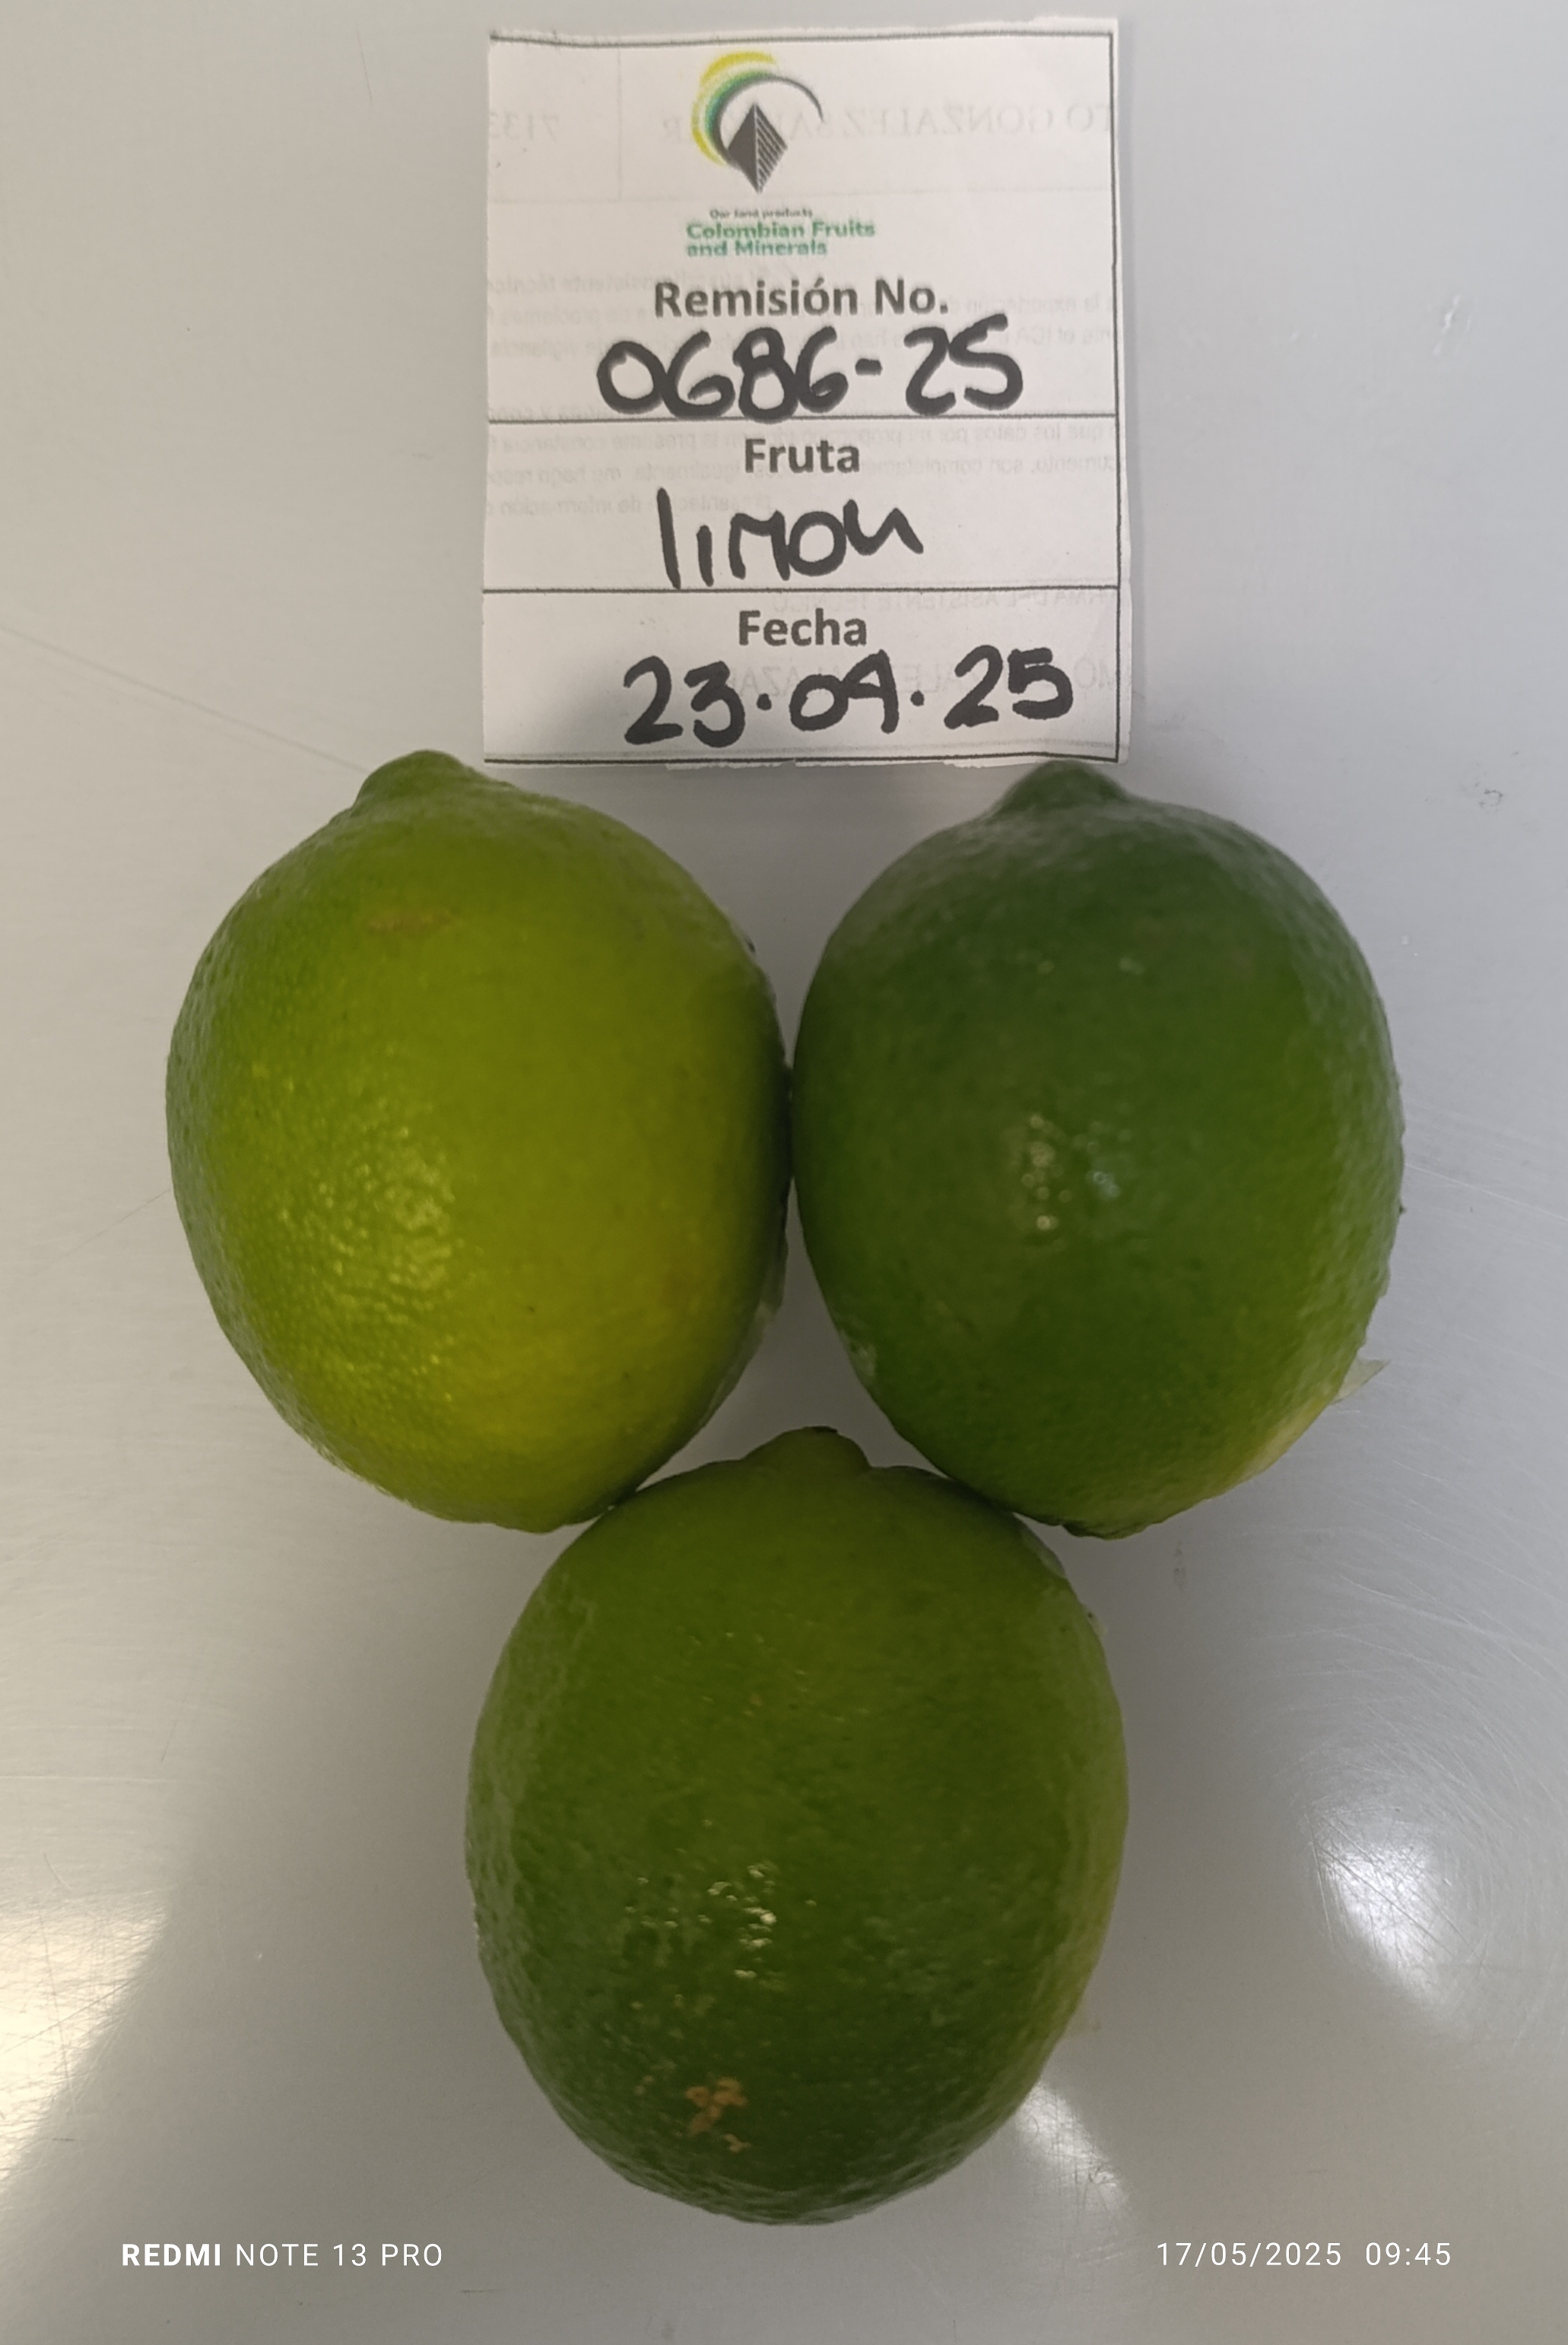 Our land products
Colombian Fruits
and Minerals
Remisión No.
0686-25
Fruta
limon
Fecha
23.04.25
REDMI NOTE 13 PRO
17/05/2025 09:45